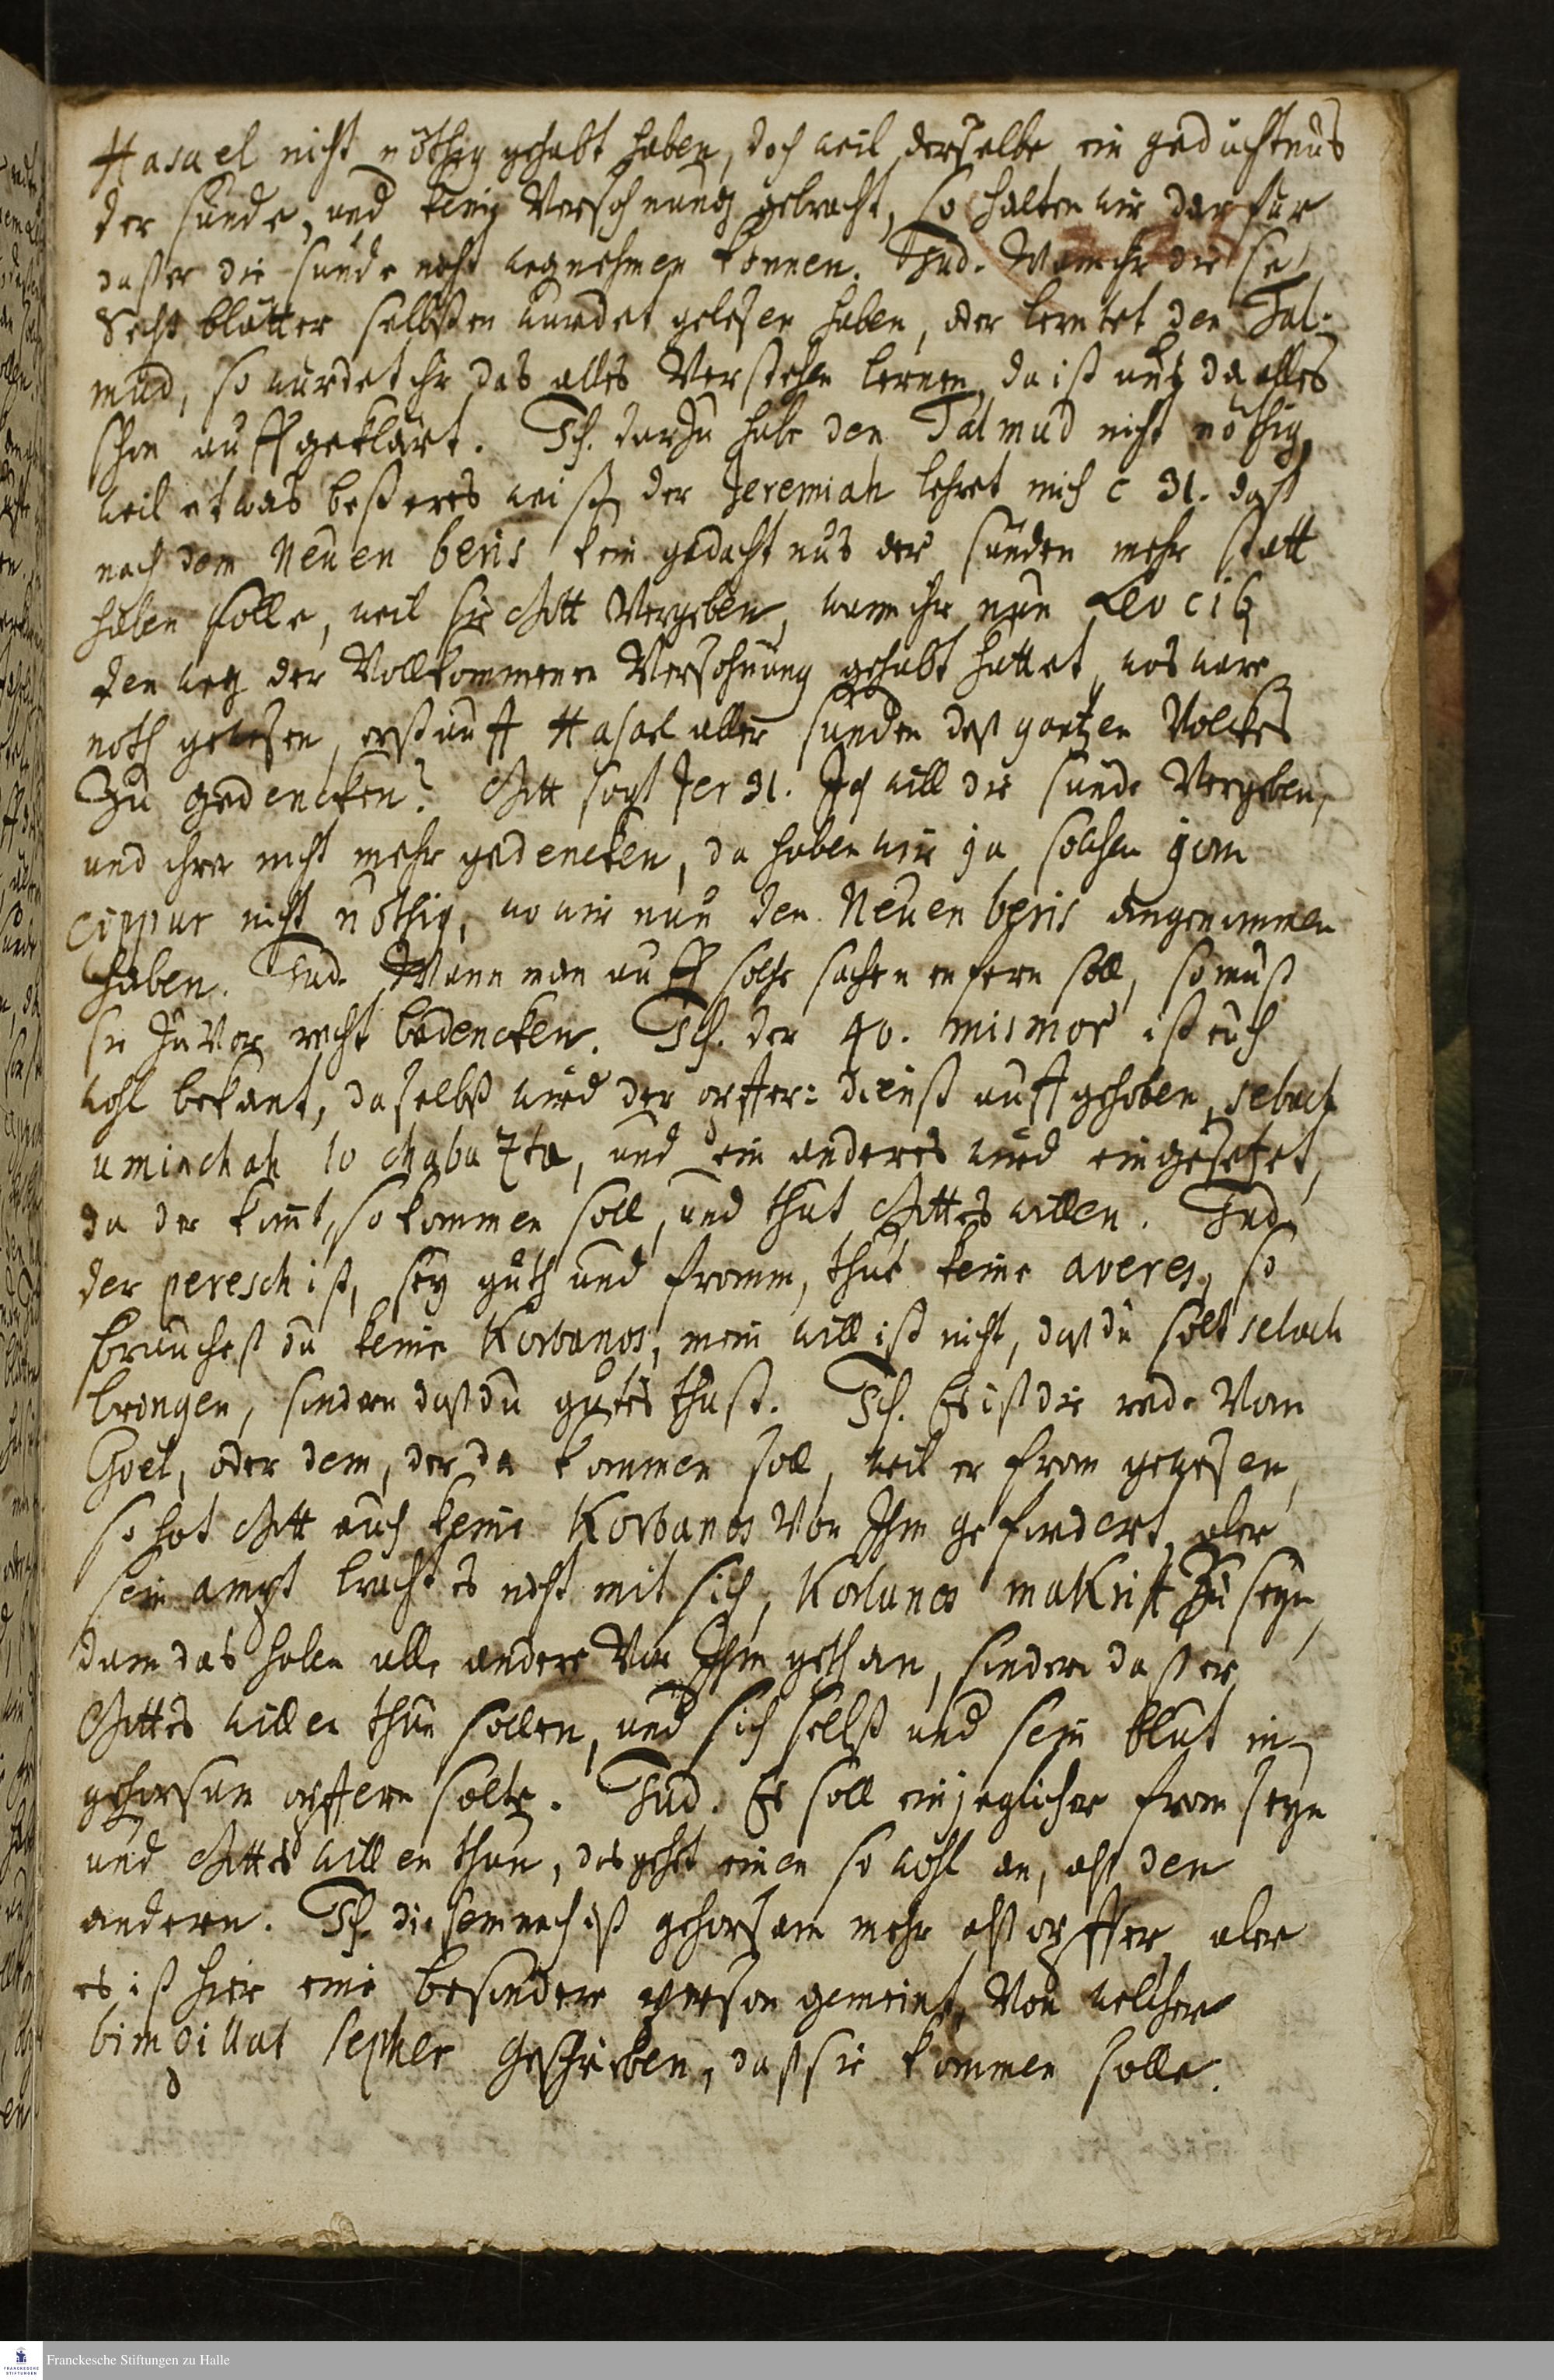 Hasael nicht nöthig gehabt haben, doch weil derselbe ein gedächtnus
der sünde, und keine Versöhnung gebracht, so halten wir darfür
daß er die sünde nicht wegnehmen können. Jud. Wann ihr diese
Sechß blätter selbsten wurdet gelesen haben, oder lerntet den Tal-
mud, so würdet ihr das alles Verstehen lernen, da ist alles
schon auffgeklärt. Ich. darzu habe den Talmud nicht nöthig,
weil etwas beßeres weiß der Jeremiah lehret mich c 31. daß
nach dem Neuen beris kein gedächtnus der sünden mehr statt
haben solle, weil sie Gott Vergeben, wann ihr nun Lev c 16
den weg der Vollkommenen Versöhnung gehabt hättet, was wäre
noth gewesen, erst auff Hasael aller sünden deß gantzen Volckes
Zu gedencken? Gott sagt Jer 31. Ich will die sünde Vergeben,
und ihrer nicht mehr gedencken, da haben wir ja solchen jom
cippur nicht nöthig, wo wir nun den Neuen beris angenommen
haben. Jud. Wann man auff solche sachen antworten soll, so muß
sie zuvor recht bedencken. Ich. der 40. mismor ist euch
wohl bekant, daselbst wird der opffer-dienst auffgehoben, sebach
uminchah lo chabazta, und ein anderes wird eingesetzet,
da der komt, so kommen soll, und thut Gottes willen. Jud.
der peresch ist, sey guth und fromm, thue keine averes, so
brauchest du keine Korbanos, mein will ist nicht, daß du solt sebach
brengen, sondern daß du gutes thust. Ich. Es ist die rede Vom
Goel, oder dem, der da kommen soll, weil er from gewesen,
so hat Gott auch keine Korbanos Von Ihm gefordert, aber
sein ampt bracht es nicht mit sich, Korbanos makrif Zu seyn,
dann das haben alle andere Vor Ihm gethan, sondern daß er
Gottes willen thun sollen, und sich selbst und sein blut in
gehorsam opffern solte. Jud. Es soll ein jeglicher from seyn
und Gottes willen thun, das gehet einen so wohl an, alß den
andern. Ich. diesemnach ist gehorsam mehr alß opffer, aber
es ist hier eine besondere person gemeint, Von welcher
bimgillat sepher geschrieben, daß sie kommen solle.
Franckesche Stiftungen zu Halle